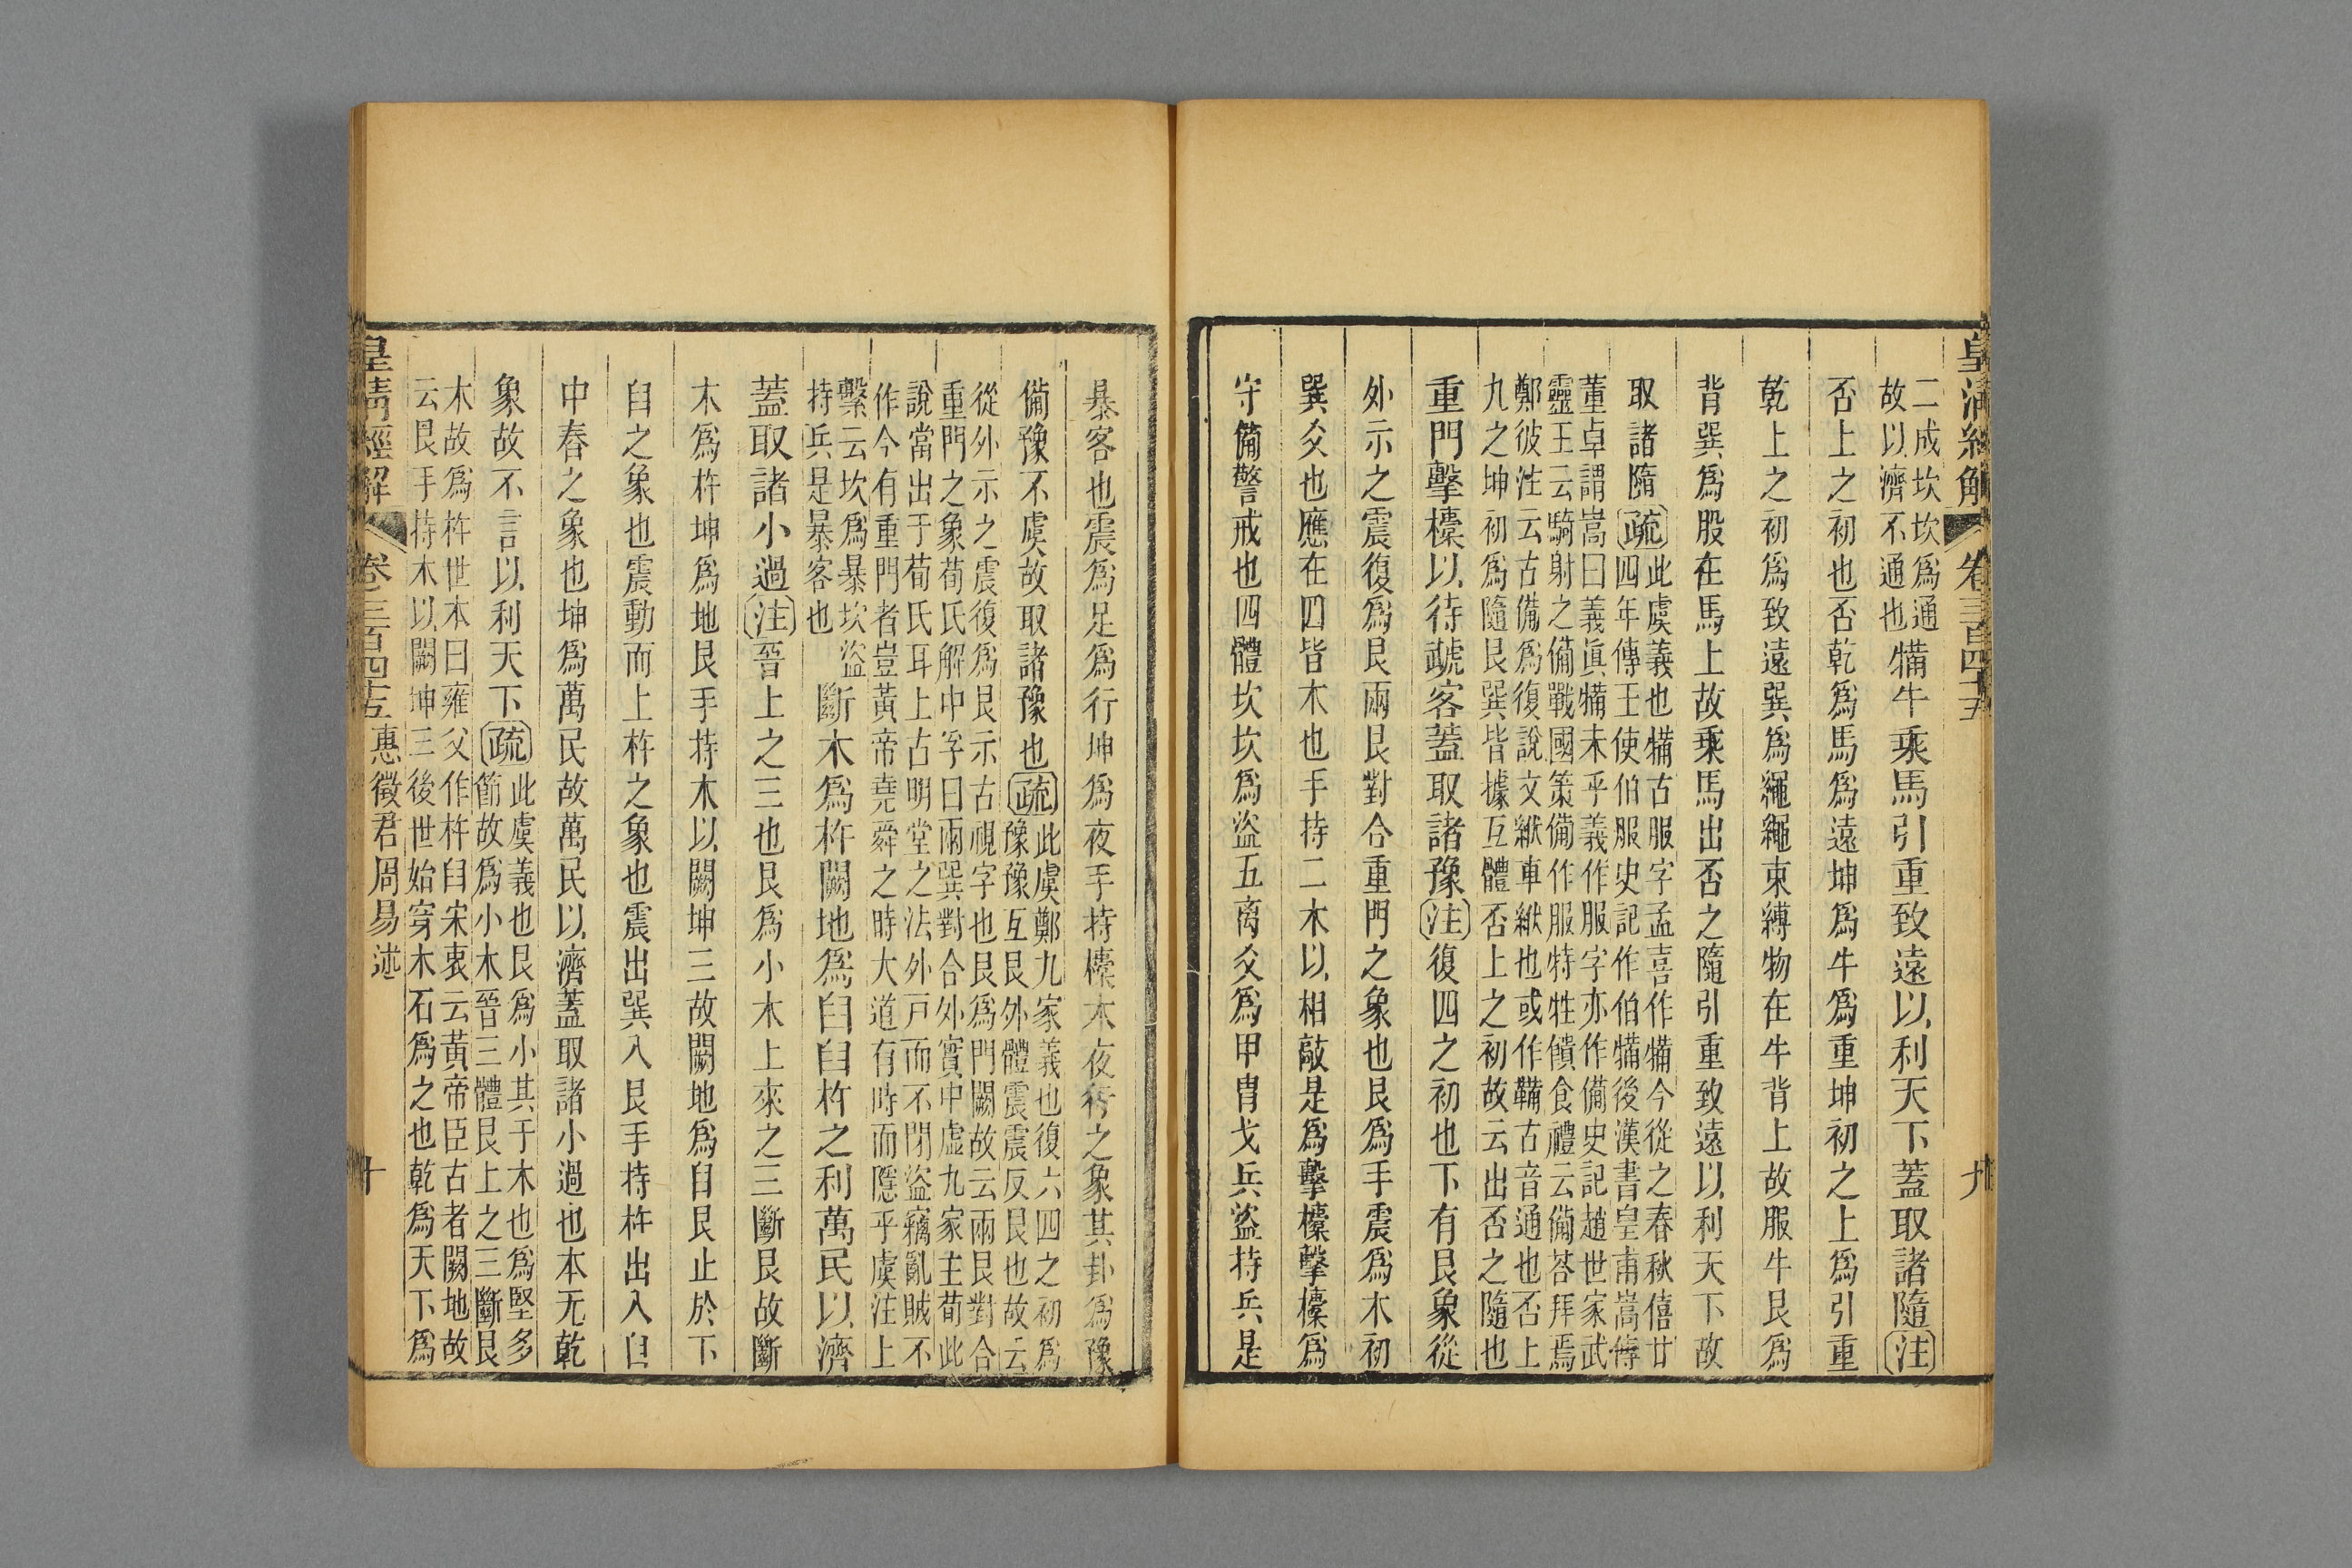 皇清經解 卷三百四十五 九
二成坎坎爲通
故以濟不通也
犕牛乘馬引重致遠以利天下蓋取諸隨注
否上之初也否乾爲馬爲遠坤爲牛爲重坤初之上爲引重
乾上之初爲致遠巽爲繩繩束縛物在牛背上故服牛艮爲
背巽爲股在馬上故乘馬出否之隨引重致遠以利天下故
取諸隋疏
此虞義也犕古服字孟喜作犕今從之春秋僖廿
四年傳王使伯服史記作伯犕後漢書皇甫嵩傳
董卓謂嵩曰義眞犕未乎義作服字亦作備史記趙世家武
靈王云騎射之備戰國策備作服特牲饋食禮云備荅拜焉
鄭彼注云古備爲復說文紲車紲也或作鞴古音通也否上
九之坤初爲隨艮巽皆據互體否上之初故云出否之隨也
重門擊㯓以待虣客蓋取諸豫注復四之初也下有艮象從
外示之震復爲艮兩艮對合重門之象也艮爲手震爲木初
巽爻也應在四皆木也手持二木以相敲是爲擊㯓擊㯓爲
守備警戒也四體坎坎爲盜五离爻爲甲冑戈兵盜持兵是
暴客也震爲足爲行坤爲夜手持㯓木夜行之象其卦爲豫
備豫不虞故取諸豫也疏
此虞鄭九家義也復六四之初爲
豫豫互艮外體震震反艮也故云
從外示之震復爲艮示古視字也艮爲門闕故云兩艮對合
重門之象荀氏解中孚曰兩巽對合外實中虛九家主荀此
說當出于荀氏耳上古明堂之法外戸而不閉盜竊亂賊不
作今有重門者豈黃帝堯舜之時大道有時而隱乎虞注上
繫云坎爲暴坎盜
持兵是暴客也
斷木爲杵闕地爲臼臼杵之利萬民以濟
蓋取諸小過注晉上之三也艮爲小木上來之三斷艮故斷
木爲杵坤爲地艮手持木以闕坤三故闕地爲臼艮止於下
臼之象也震動而上杵之象也震出巽入艮手持杵出入臼
中舂之象也坤爲萬民故萬民以濟蓋取諸小過也本无乾
象故不言以利天下疏
此虞義也艮爲小其于木也爲堅多
節故爲小木晉三體艮上之三斷艮
木故爲杵世本曰雍父作杵臼宋衷云黃帝臣古者闕地故
云艮手持木以闕坤三後世始穿木石爲之也乾爲天下爲
皇清經解 卷三百四十五 惠徵君周易述 十